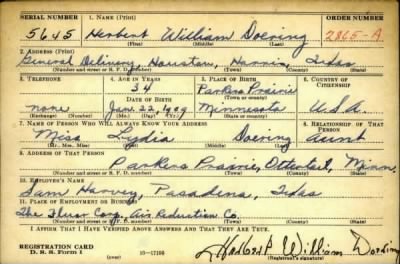 SERIAL NUMBER 1. NAME (Print) ORDER NUMBER
5645 Herbert William Doering 2865-A
(First) (Middle) (Last)
2. ADDRESS (Print)
General Delivery, Houston, Harris, Texas
(Number and street or R. F. D. number) (Town) (County) (State)
3. TELEPHONE 4. AGE IN YEARS 5. PLACE OF BIRTH 6. COUNTRY OF CITIZENSHIP
34 Parkers Prairie
DATE OF BIRTH (Town or county)
none Jan. 22, 1909 Minnesota U.S.A.
(Exchange) (Number) (Mo.) (Day) (Yr.) (State or country)
7. NAME OF PERSON WHO WILL ALWAYS KNOW YOUR ADDRESS 8. RELATIONSHIP OF THAT PERSON
Miss Lydia Doering Aunt
(Mr., Mrs., Miss) (First) (Middle) (Last)
9. ADDRESS OF THAT PERSON
Parkers Prairie, Ottertail, Minn.
(Number and street or R. F. D. number) (Town) (County) (State)
10. EMPLOYER'S NAME
Sam Harvey, Pasadena, Texas
11. PLACE OF EMPLOYMENT OR BUSINESS
The Fluor Corp. Air Reduction Co.
(Number and street or R. F. D. number) (Town) (County) (State)
I AFFIRM THAT I HAVE VERIFIED ABOVE ANSWERS AND THAT THEY ARE TRUE.
REGISTRATION CARD
D. S. S. FORM 1 (over) 16—17105 Herbert William Doering
(Registrant's signature)